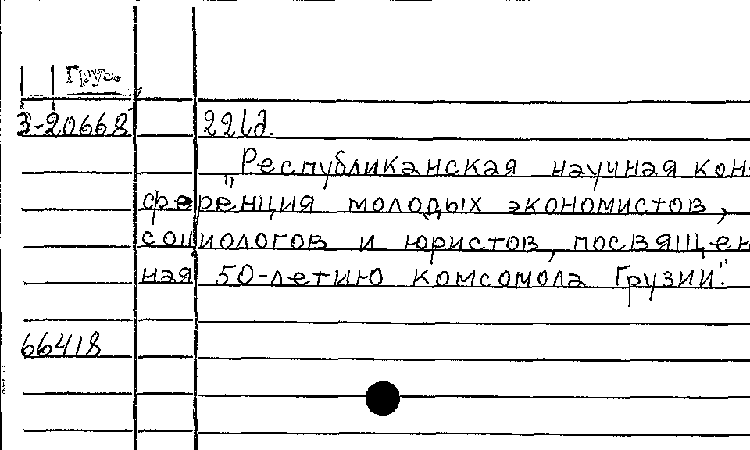 Груз.
3-20668 221д.
"Республиканская научная кон-
ференция молодых экономистов,
социологов и юристов, посвящен
ная 50-летию комсомола Грузии".
66418